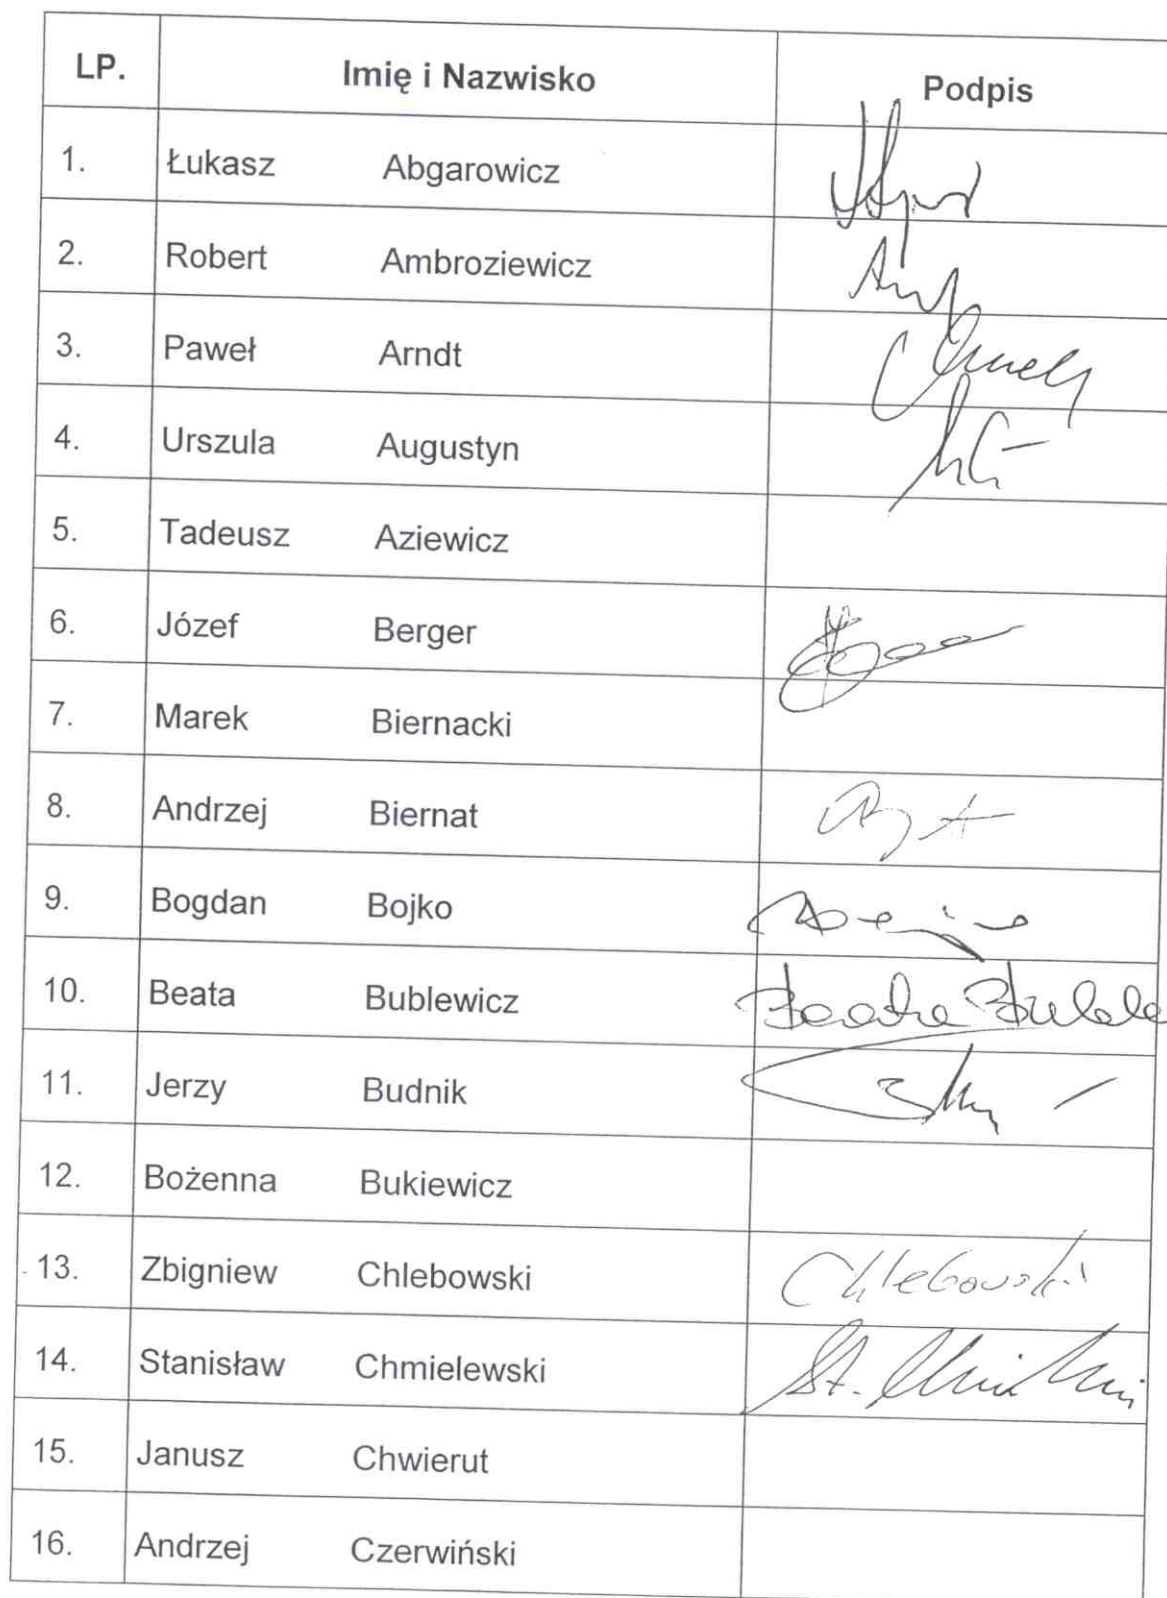 LP. Imię i Nazwisko Podpis
1. Łukasz Abgarowicz
2. Robert Ambroziewicz
3. Paweł Arndt
4. Urszula Augustyn
5. Tadeusz Aziewicz
6. Józef Berger
7. Marek Biernacki
8. Andrzej Biernat
9. Bogdan Bojko
10. Beata Bublewicz
11. Jerzy Budnik
12. Bożenna Bukiewicz
13. Zbigniew Chlebowski Chlebowski
14. Stanisław Chmielewski St.
15. Janusz Chwierut
16. Andrzej Czerwiński